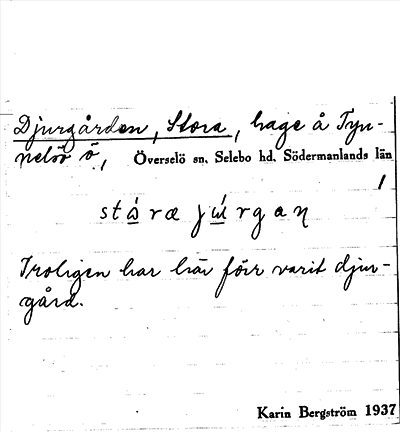 Djurgården, Stora, hage å Tyn-
nelsö ö, Överselö sn, Selebo hd, Södermanlands län
stóræ júrgan
Troligen har här förr varit djur-
gård.
Karin Bergström 1937